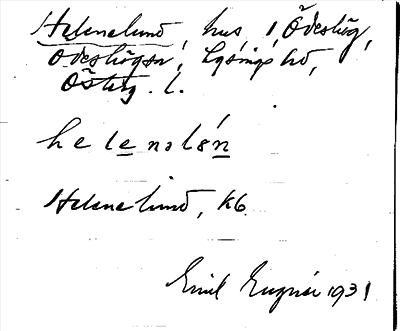 Helenelund, hus, i Ödeshög,
Ödeshögs sn, Lysings hd,
Österg. l.
helenəlún
Helenelund, kb
Emil 1931